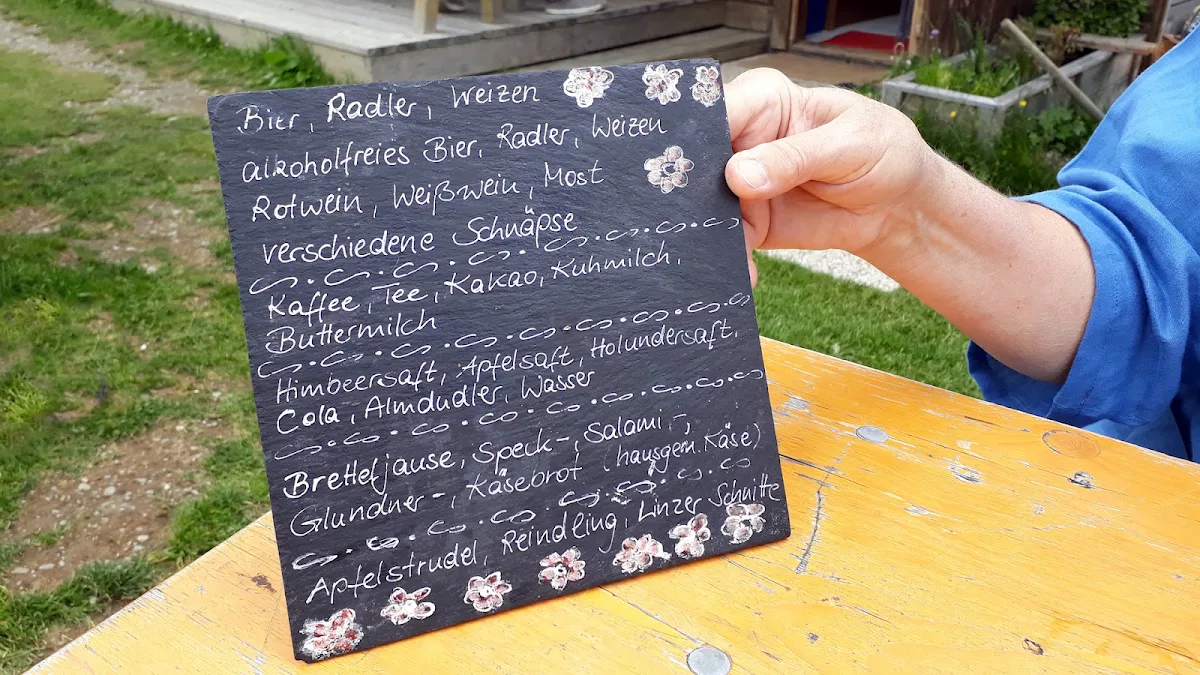 Bier, Radler, Weizen
alkoholfreies Bier, Radler, Weizen
Rotwein, Weißwein, Most
verschiedene Schnäpse
Kaffee, Tee, Kakao, Kuhmilch,
Buttermilch
Himbeersaft, Apfelsaft, Holundersaft,
Cola, Almdudler, Wasser
Bretteljause, Speck-, Salami-,
Glundner-, Käsebrot (hausgem. Käse)
Apfelstrudel, Reindling, Linzer Schnitte